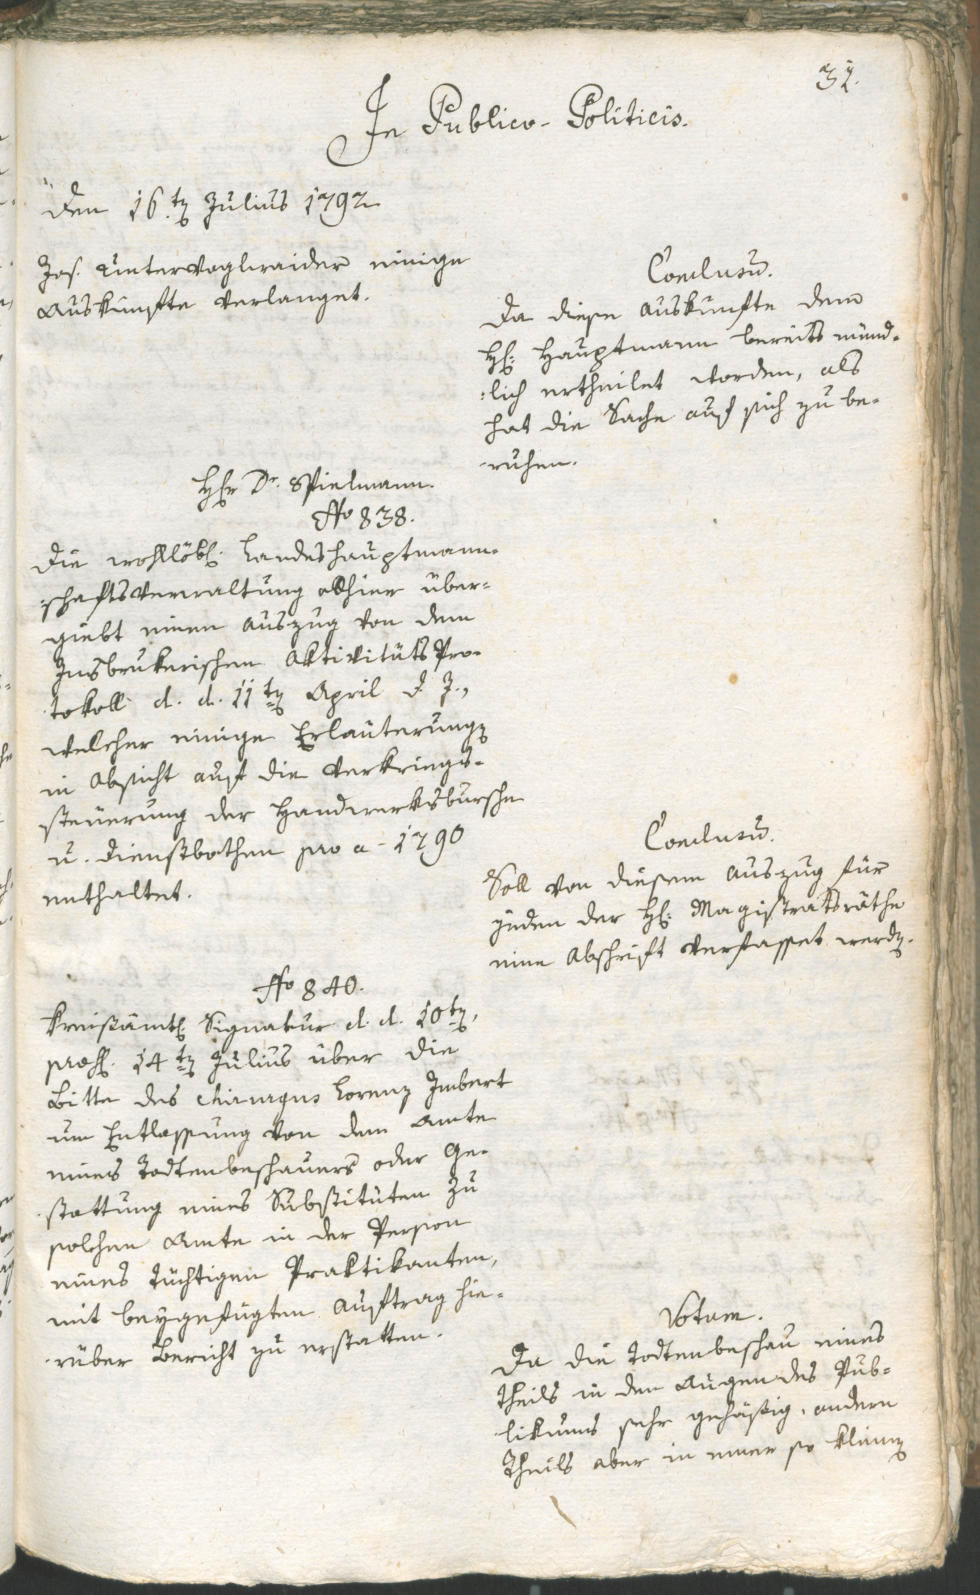 32.
In Publico-Politicis.
den 16.ten Julius 1792
Jos. Untervoglraider einige
Auskünfte verlanget.
Conclusū.
Da diese Auskünfte dem
H: Hauptmann bereits münd-
lich ertheilet worden, als
hat die Sache auf sich zu be-
ruhen.
Hr Dr. Spielmann.
No 838.
Die wohllöbl. Landeshauptmann-
schaftsverwaltung allhier über-
giebt einen Auszug von dem
Insbrukerischen Aktivitäts Pro-
tokoll d. d. 11ten April d. J.,
welcher einige Erläuterungen
in Absicht auf die Verkriegs-
steuerung der Handwerksbursche
u. Dienstbothen pro a- 1790
enthaltet.
Conclusū.
Soll von diesem Auszug für
jeden der H: Magistratsräthe
eine Abschrift verfasset werden.
No 840.
Kreisämtl. Signatur d. d. 10ten,
pros. 14ten Julius über die
Bitte des Chirurgus Lorenz Imbert
um Entlassung von dem Amte
eines Todtenbeschauers oder Ge-
stattung eines Substituten zu
solchem Amte in der Person
eines tüchtigen Praktikanten,
mit beygefügten Auftrag hie-
rüber Bericht zu erstatten.
Votum.
Da die Todtenbeschau eines
Theils in den Augen des Pub-
likums sehr gehäßig, andern
Theils aber in einer so kleinen